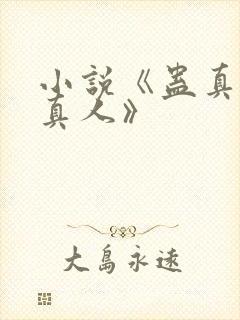 小說《蠱真
真人》
大島永遠